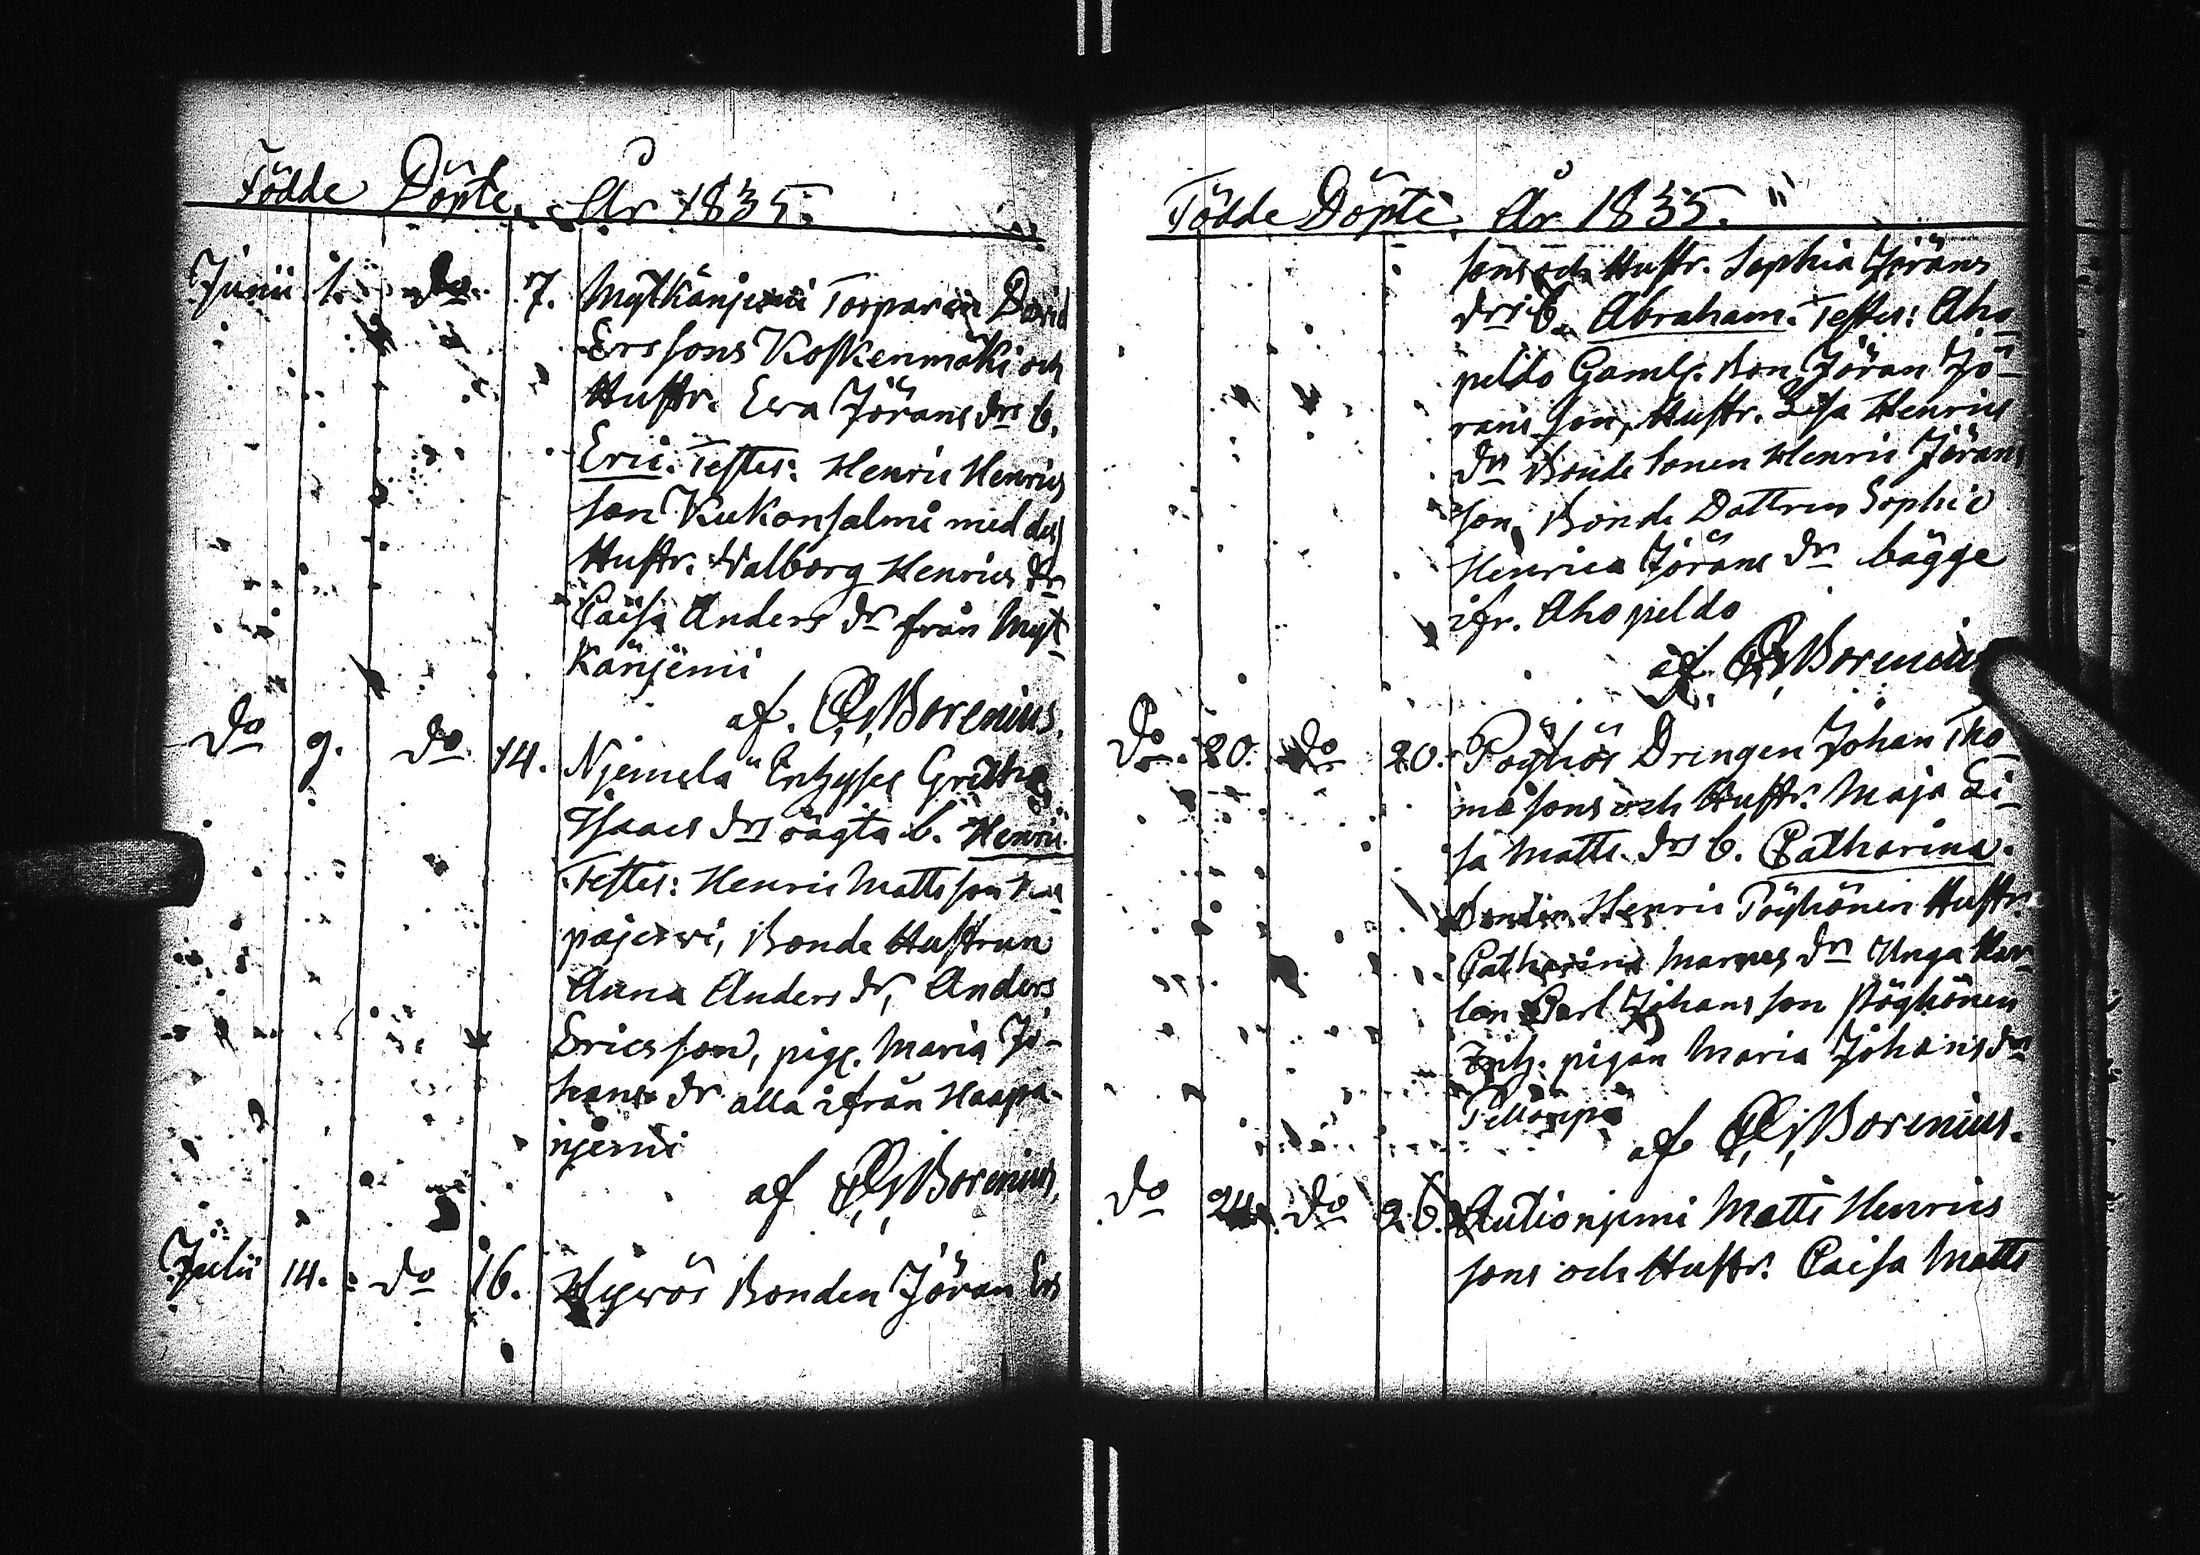 Födde Döpte. År 1835.
Junii 1. do 7. Mytkänjemi Torparen David
Erssons Koskenmäki och
Hustr. Ewa Jörans drs b.
Eric. Testes: Henric Henrics
son Kukonsalmi med dess
Hustr. Walborg Henrics dr
Caisa Anders dr från Myt
känjemi
af. Borenius.
do 9. do 14. Njemelä Enhyses Gretha
Isaacs drs oägta b. Henric
Testes: Henric Mattsson
pajerwi, Bonde Hustrun
Anna Anders dr, Anders
Ericsson, pig. Maria Jo-
hans dr alla ifrån Haapa-
njemi
af Borenius,
Julii 14. do 16. Hywös Bonden Jöran Ers
Födde Döpte. År 1835.
sons och Hustr. Sophia Jörans
drs b. Abraham. Testes: Aho-
peldo Gamle. Bon Jöran Jö-
rans son, Hustr. Lisa Henrics
dr Bonde Sonen Henric Jörans
son, Bonde Dottren Sophie
Henrica Jörans dr bägge
ifr. Ahopeldo
af Borenius
do 20. do 20. Pöyhös Drengen Johan Tho-
mæsons och Hustr. Maja Li-
sa Matts drs b. Catharina.
Bonden Henric Pöyhönen Hustr.
Catharina Marcus dr Unga Kar-
len Carl Johansson Pöyhönen
Inh. pigan Maria Johans dr
Pellänpä
af Borenius.
do 24. do 26. Autionjemi Matts Henrics
sons och Hustr. Caisa Matts